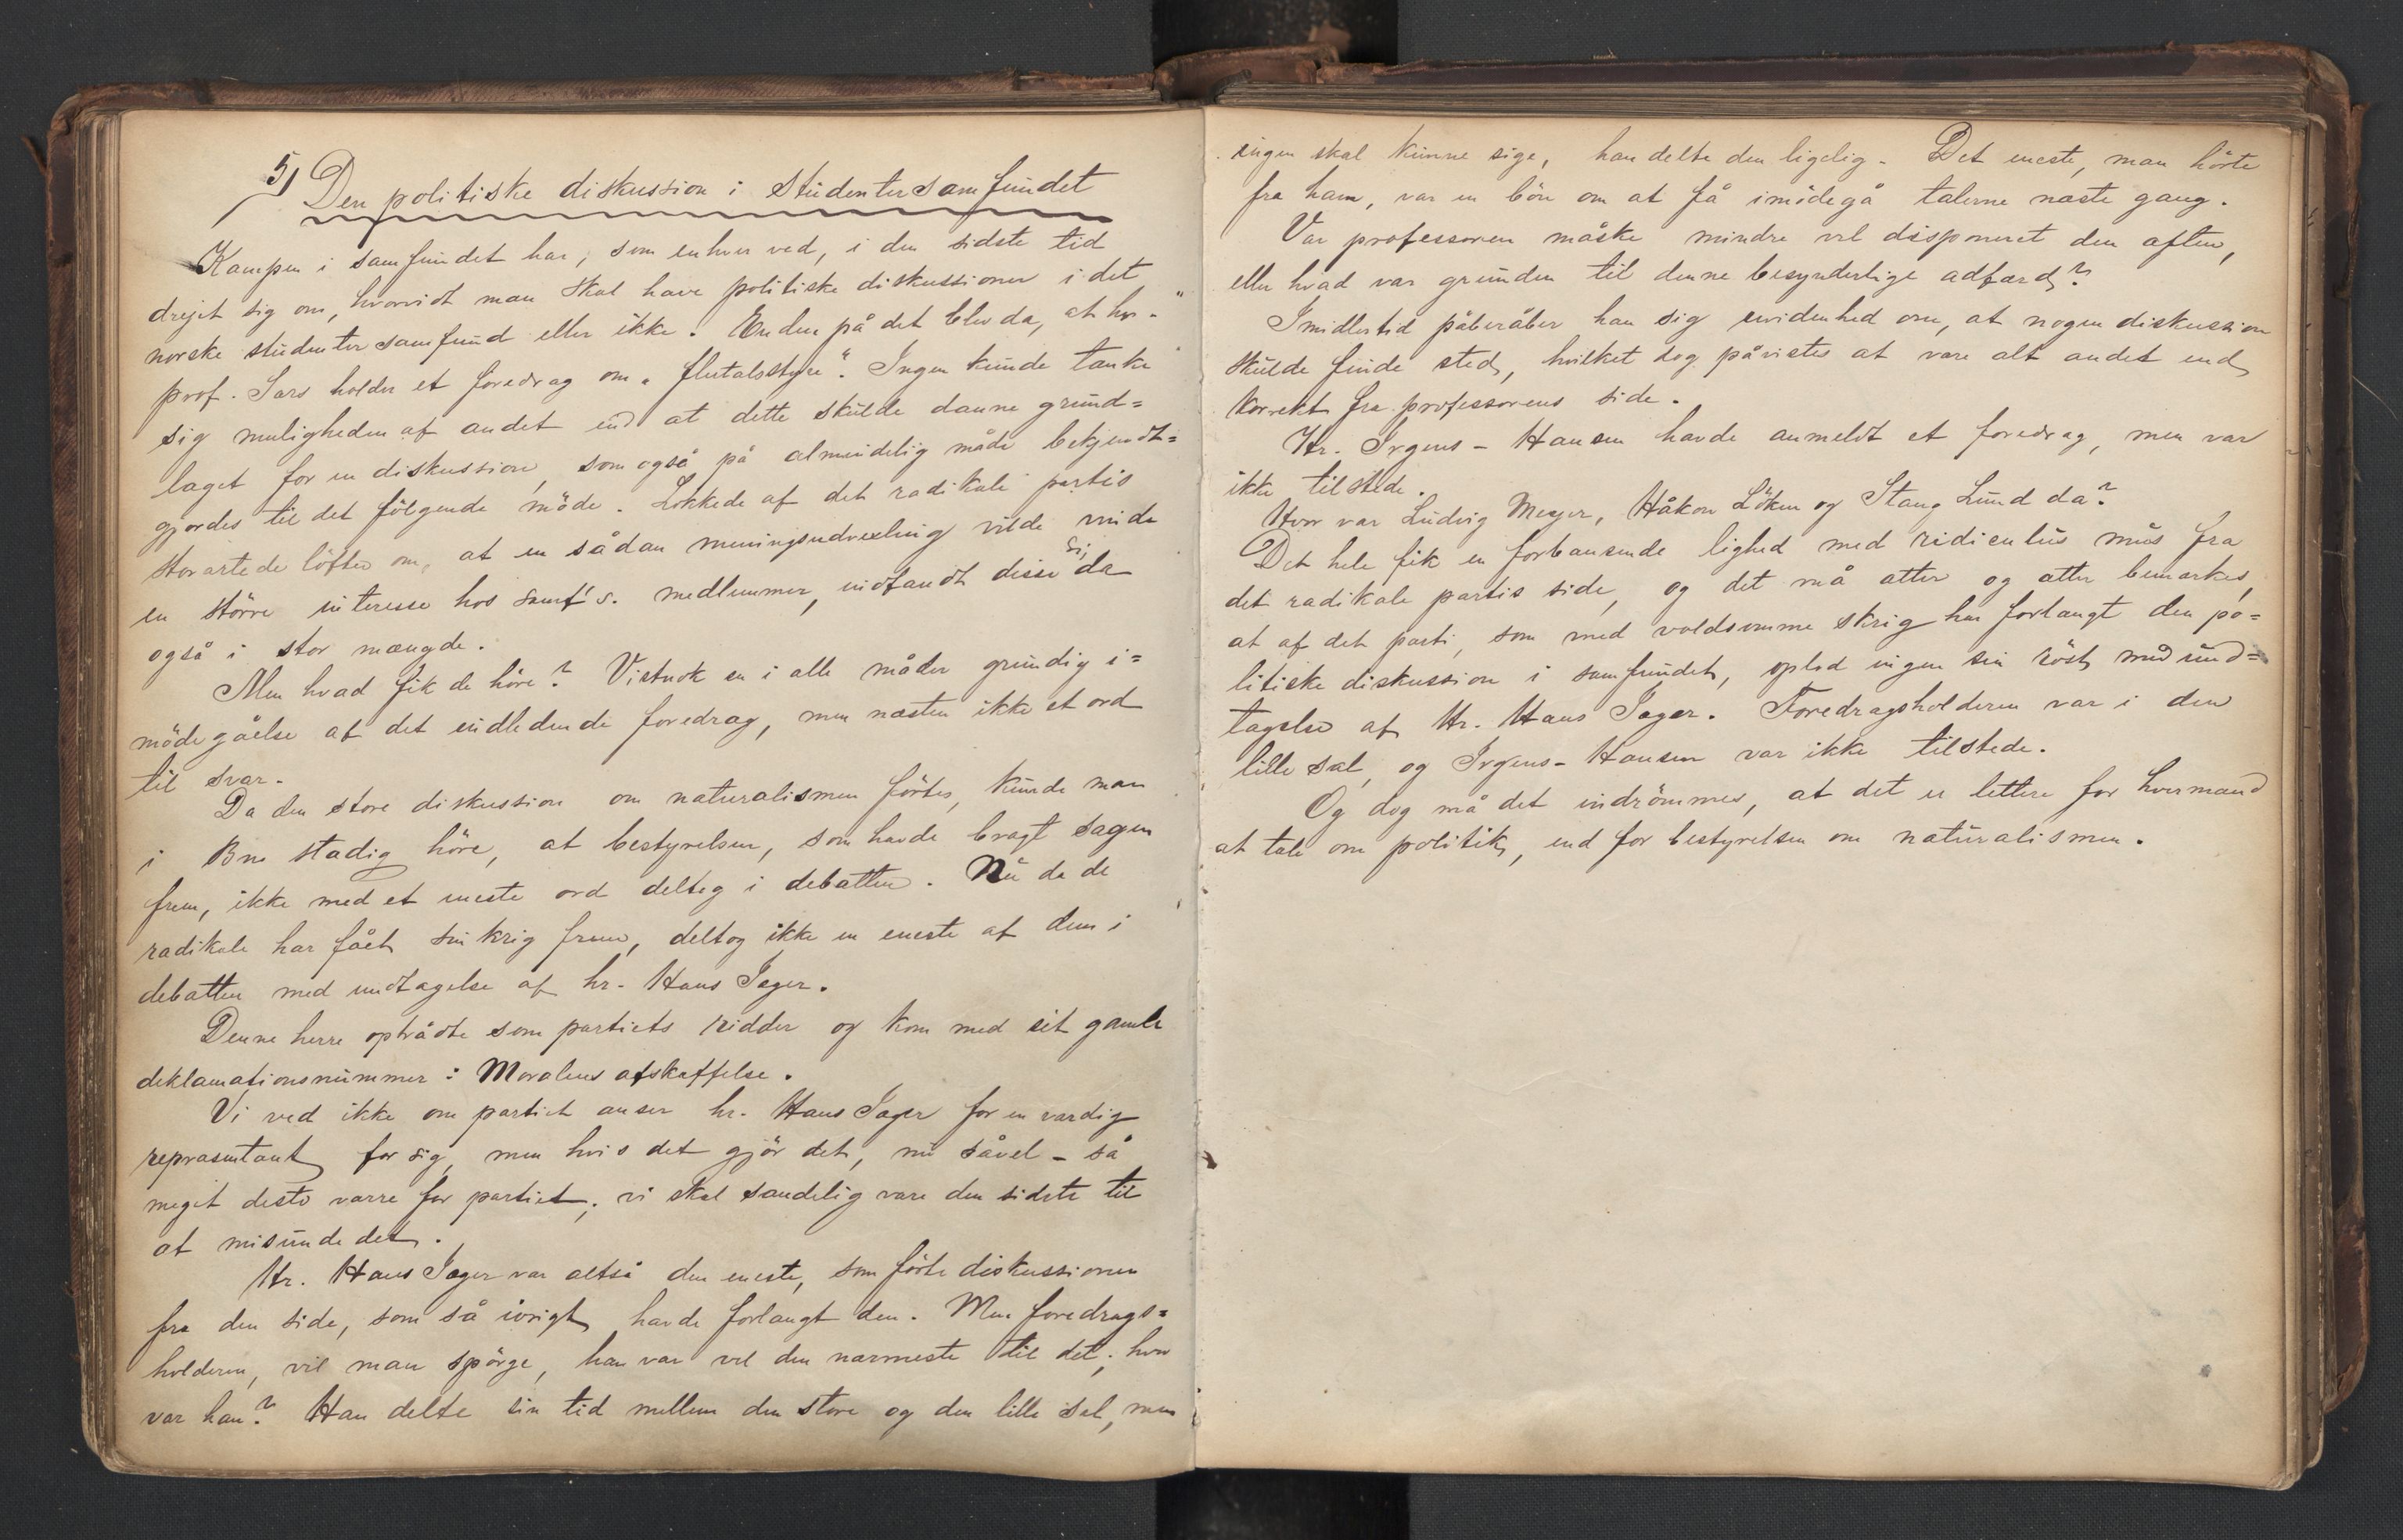 5) Den politiske diskussion i studentersamfundet
Kampen i samfundet har, som enhver ved, i den sidste tid
drejet sig om, hvorvidt man skal have politiske diskussioner i det
norske studentersamfund eller ikke. Enden på det blev da, at hr.
prof. Sars holder et foredrag om „flertalsstyre“. Ingen kunde tænke
sig muligheden af andet end at dette skulde danne grund=
laget for en diskussion, som også på almindelig måde bekjendt=
gjordes til det følgende møde. Lokkede af det radikale partis
storartede løfter om, at en sådan meningsudvexling vilde vinde
en større interesse hos samf's. medlemmer, indfandt disse si, da
også i stor mængde.
Men hvad fik de höre? Vistnok en i alle måder grundig i=
mödegåelse af det indledende foredrag, men næsten ikke et ord
til svar.
Da den store diskussion om naturalismen førtes, kunde man
i Bne stadig höre, at bestyrelsen, som havde bragt sagen
frem, ikke med et eneste ord deltog i debatten. Nu da de
radikale har fået sin krig frem, deltog ikke en eneste af dem i
debatten med undtagelse af hr. Hans Jæger.
Denne herre optrådte som partiets ridder og kom med sit gamle
deklamationsnummer: Moralens afskaffelse.
Vi ved ikke om partiet anser hr. Hans Jæger for en værdig
repræsentant for sig, men hvis det gjör det, nu såvel – så
meget desto værre for partiet; vi skal sandelig være den sidste til
at misunde det.
Hr. Hans Jæger var altså den eneste, som förte diskussionen
fra den side, som så ivrigt havde forlangt den. Men foredrags=
holderen, vil man spörge, han var vel den nærmeste til det; hvor
var han? Han delte sin tid mellem den store og den lille sal, men
ingen skal kunne sige, han delte den ligelig. Det eneste, man hörte
fra ham, var en bön om at få imödegå talerne næste gang.
Var professoren måske mindre vel disponeret den aften,
eller hvad var grunden til denne besynderlige adfærd?
Imidlertid påberåber han sig uvidenhed om, at nogen diskussion
skulde finde sted, hvilket dog påvistes at være alt andet end
korrekt fra professorens side.
Hr. Irgens-Hansen havde anmeldt et foredrag, men var
ikke tilstede.
Hvor var Ludvig Meyer, Håkon Löken og Stang Lund da?
Det hele fik en forbausende lighed med ridiculus mus fra
det radikale partis side, og det må atter og atter bemærkes,
at af det parti, som med voldsomme skrig har forlangt den po=
litiske diskussion i samfundet, oplod ingen sin röst med und=
tagelse af Hr. Hans Jæger. Foredragsholderen var i den
lille sal, og Irgens-Hansen var ikke tilstede.
Og dog må det indrömmes, at det er lettere for hvermand
at tale om politik, end for bestyrelsen om naturalismen.